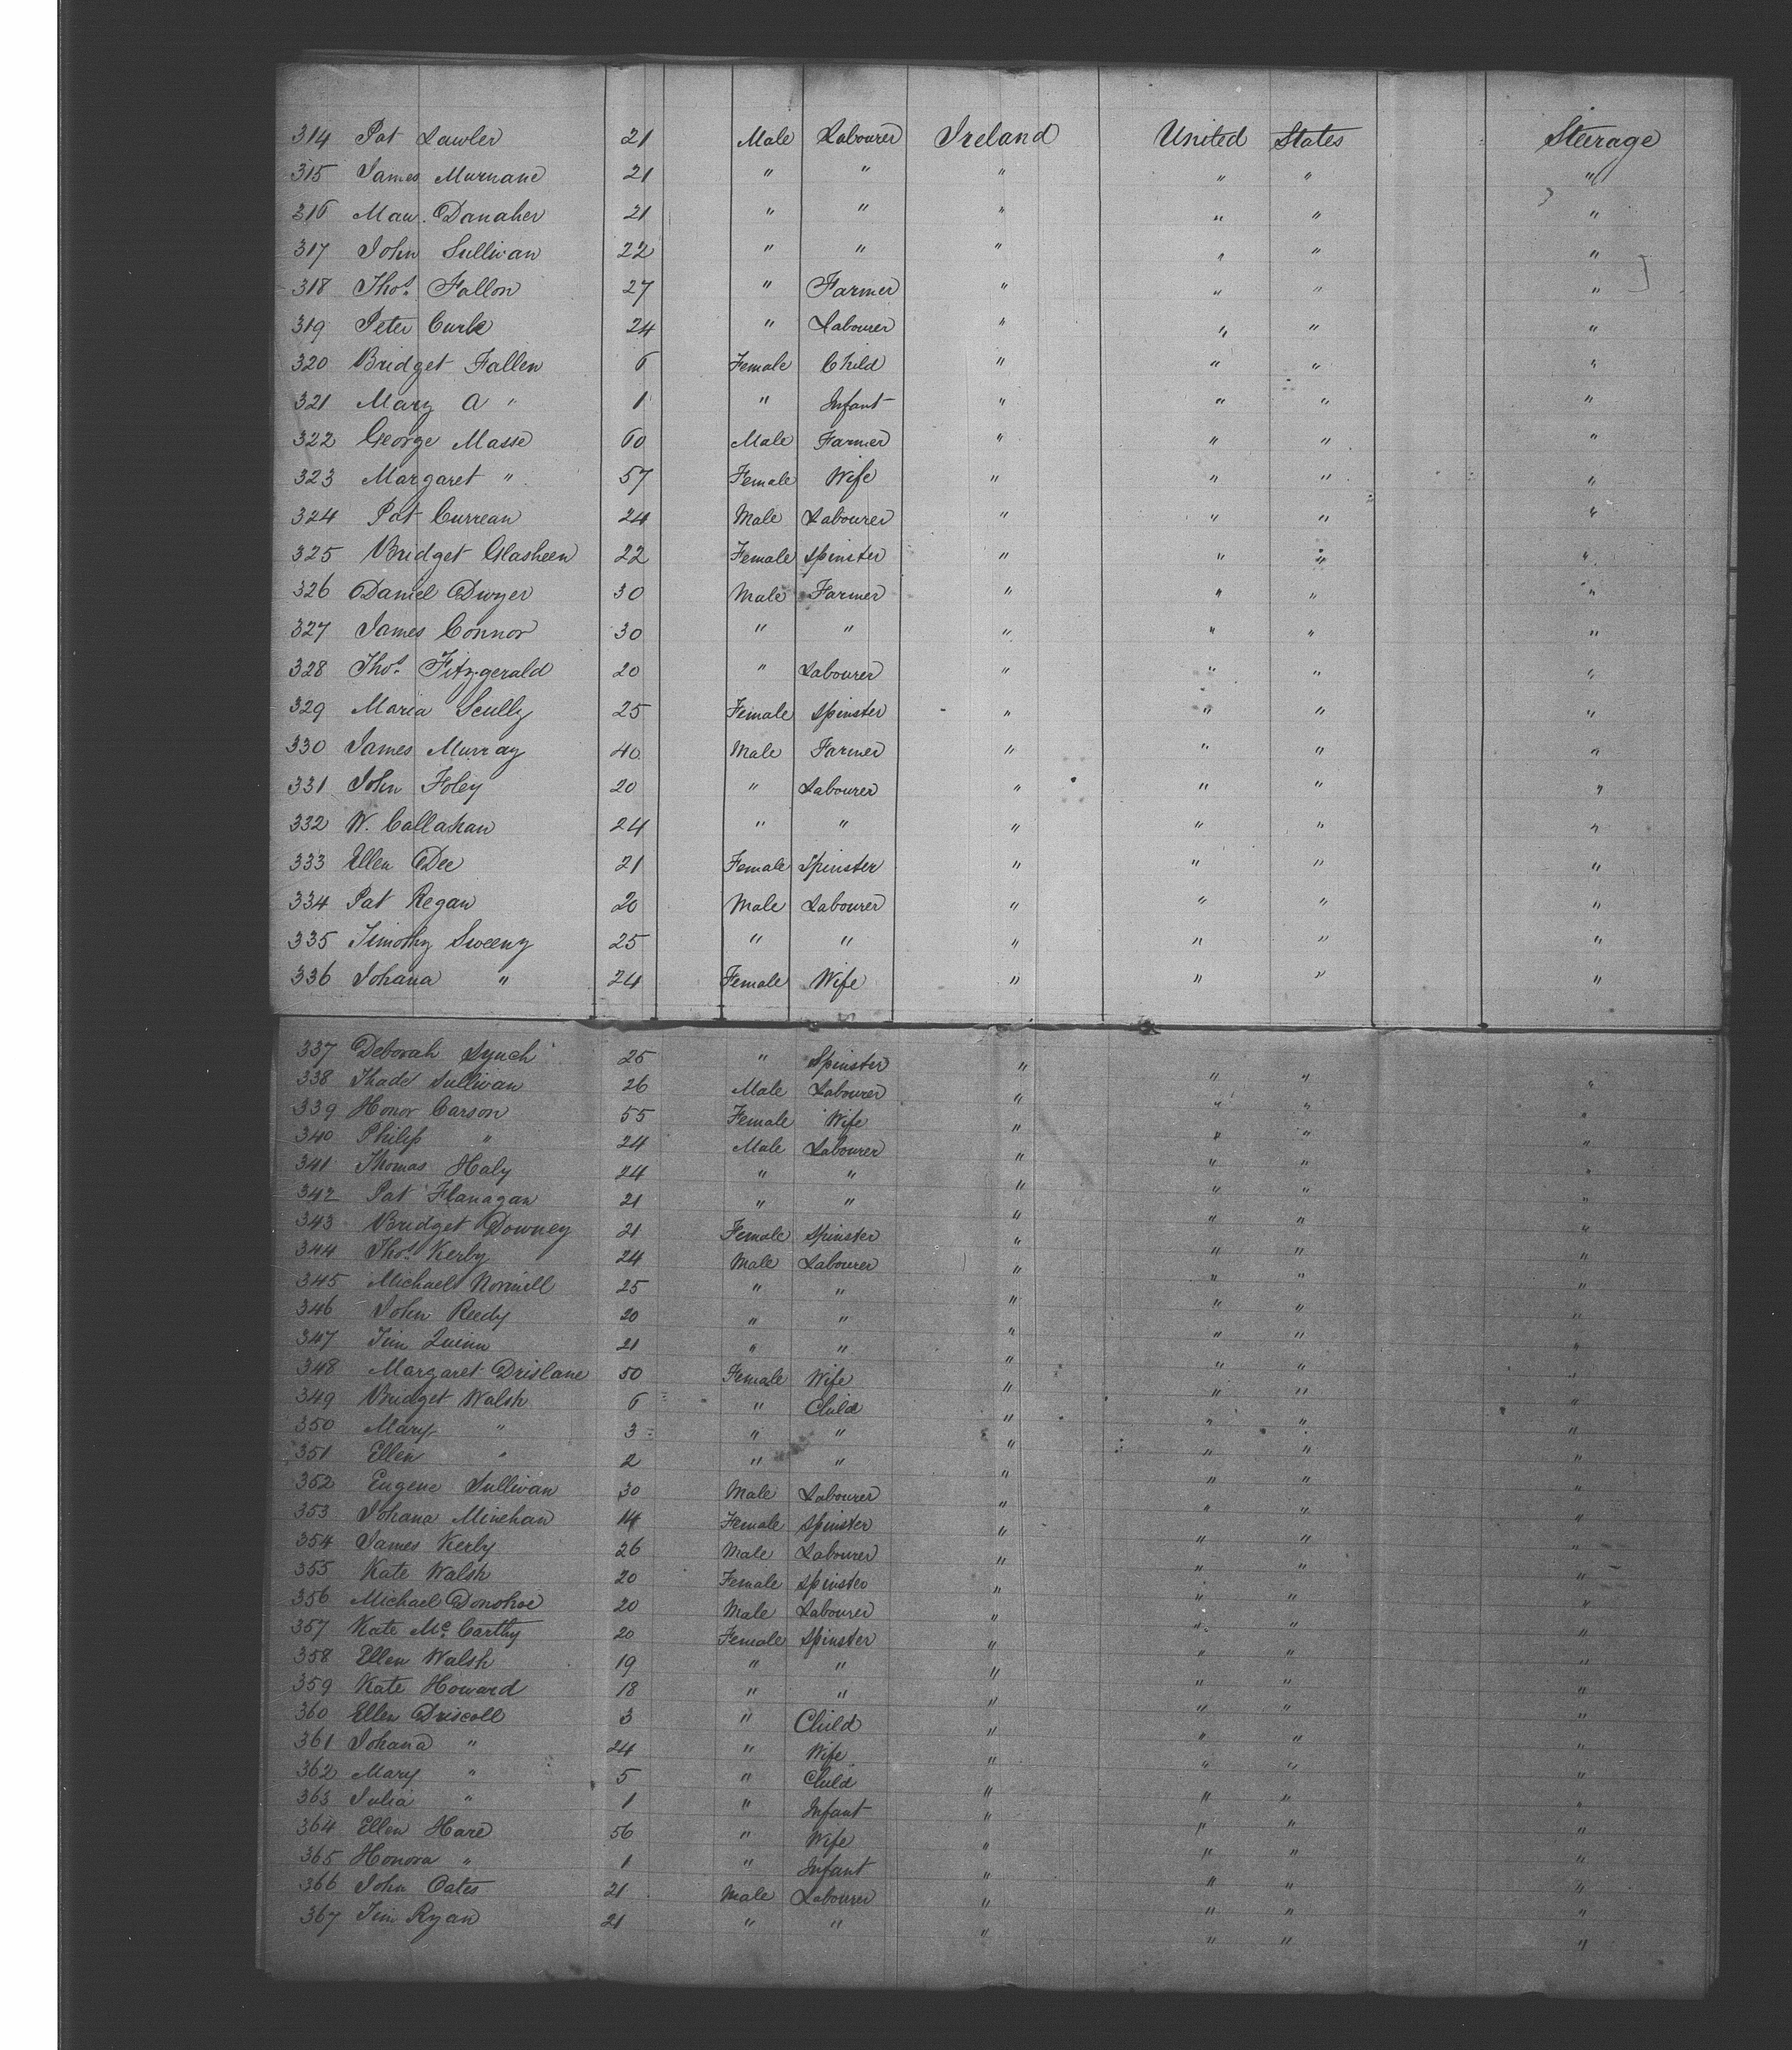 314 Pat Lawler 21 Male Labourer Ireland United States Steerage
315 James Murnane 21 " " " " " "
316 Mau. Danaher 21 " " " " " "
317 John Sullivan 22 " " " " " "
318 Thos. Fallon 27 " Farmer " " " "
319 Peter Curle 24 " Labourer " " " "
320 Bridget Fallen 6 Female Child " " " "
321 Mary A " 1 " Infant " " " "
322 George Masse 60 Male Farmer " " " "
323 Margaret " 57 Female Wife " " " "
324 Pat Currean 24 Male Labourer " " " "
325 Bridget Glasheen 22 Female Spinster " " " "
326 Daniel Dwyer 30 Male Farmer " " " "
327 James Connor 30 " " " " " "
328 Thos. Fitzgerald 20 " Labourer " " " "
329 Maria Scully 25 Female Spinster " " " "
330 James Murray 40 Male Farmer " " " "
331 John Foley 20 " Labourer " " " "
332 W. Callahan 24 " " " " " "
333 Ellen Dee 21 Female Spinster " " " "
334 Pat Regan 20 Male Labourer " " " "
335 Timothy Sweeny 25 " " " " " "
336 Johana " 24 Female Wife " " " "
337 Deborah Lynch 25 " Spinster " " " "
338 Thade Sullivan 26 Male Labourer " " " "
339 Honor Carson 55 Female Wife " " " "
340 Philip " 24 Male Labourer " " " "
341 Thomas Haly 24 " " " " " "
342 Pat Flanagan 21 " " " " " "
343 Bridget Downey 21 Female Spinster " " " "
344 Thos. Kerby 24 Male Labourer " " " "
345 Michael Normill 25 " " " " " "
346 John Reedy 20 " " " " " "
347 Jim Quinn 21 " " " " " "
348 Margaret Drislane 50 Female Wife " " " "
349 Bridget Walsh 6 " Child " " " "
350 Mary " 3 " " " " " "
351 Ellen " 2 " " " " " "
352 Eugene Sullivan 30 Male Labourer " " " "
353 Johana Minehan 14 Female Spinster " " " "
354 James Kerby 26 Male Labourer " " " "
355 Kate Walsh 20 Female Spinster " " " "
356 Michael Donohoe 20 Male Labourer " " " "
357 Kate Mc. Carthy 20 Female Spinster " " " "
358 Ellen Walsh 19 " " " " " "
359 Kate Howard 18 " " " " " "
360 Ellen Driscoll 3 " Child " " " "
361 Johana " 24 " Wife " " " "
362 Mary " 5 " Child " " " "
363 Julia " 1 " Infant " " " "
364 Ellen Hare 56 " Wife " " " "
365 Honora " 1 " Infant " " " "
366 John Oates 21 Male Labourer " " " "
367 Jim Ryan 21 " " " " " "